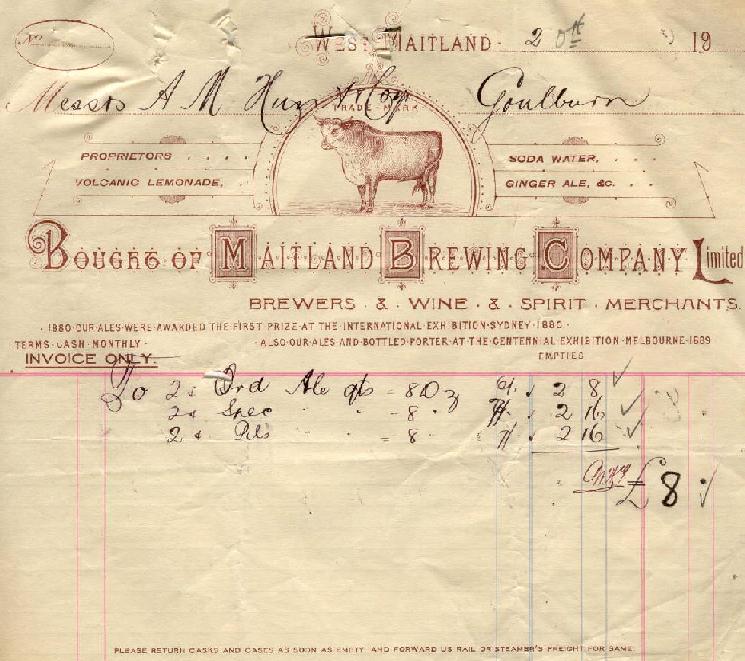 No
West Maitland 2 Oct 19
Messrs A M Hunt & Coy Goulburn
TRADE MARK
PROPRIETORS . . . .
VOLCANIC LEMONADE,
SODA WATER, . . .
GINGER ALE, &c. . . .
Bought of Maitland Brewing Company Limited
BREWERS & WINE & SPIRIT MERCHANTS.
1880 OUR ALES WERE AWARDED THE FIRST PRIZE AT THE INTERNATIONAL EXHIBITION SYDNEY 1880
TERMS CASH MONTHLY ALSO OUR ALES AND BOTTLED PORTER AT THE CENTENNIAL EXHIBITION MELBOURNE 1889
INVOICE ONLY. EMPTIES
To 2 Ord Ale qts = 8 Dz 2 8
2 Spec " " - 8 " 2 16
2 " " = 8 " 2 16
£8
PLEASE RETURN CASKS AND CASES AS SOON AS EMPTY AND FORWARD US RAIL OR STEAMER'S FREIGHT FOR SAME